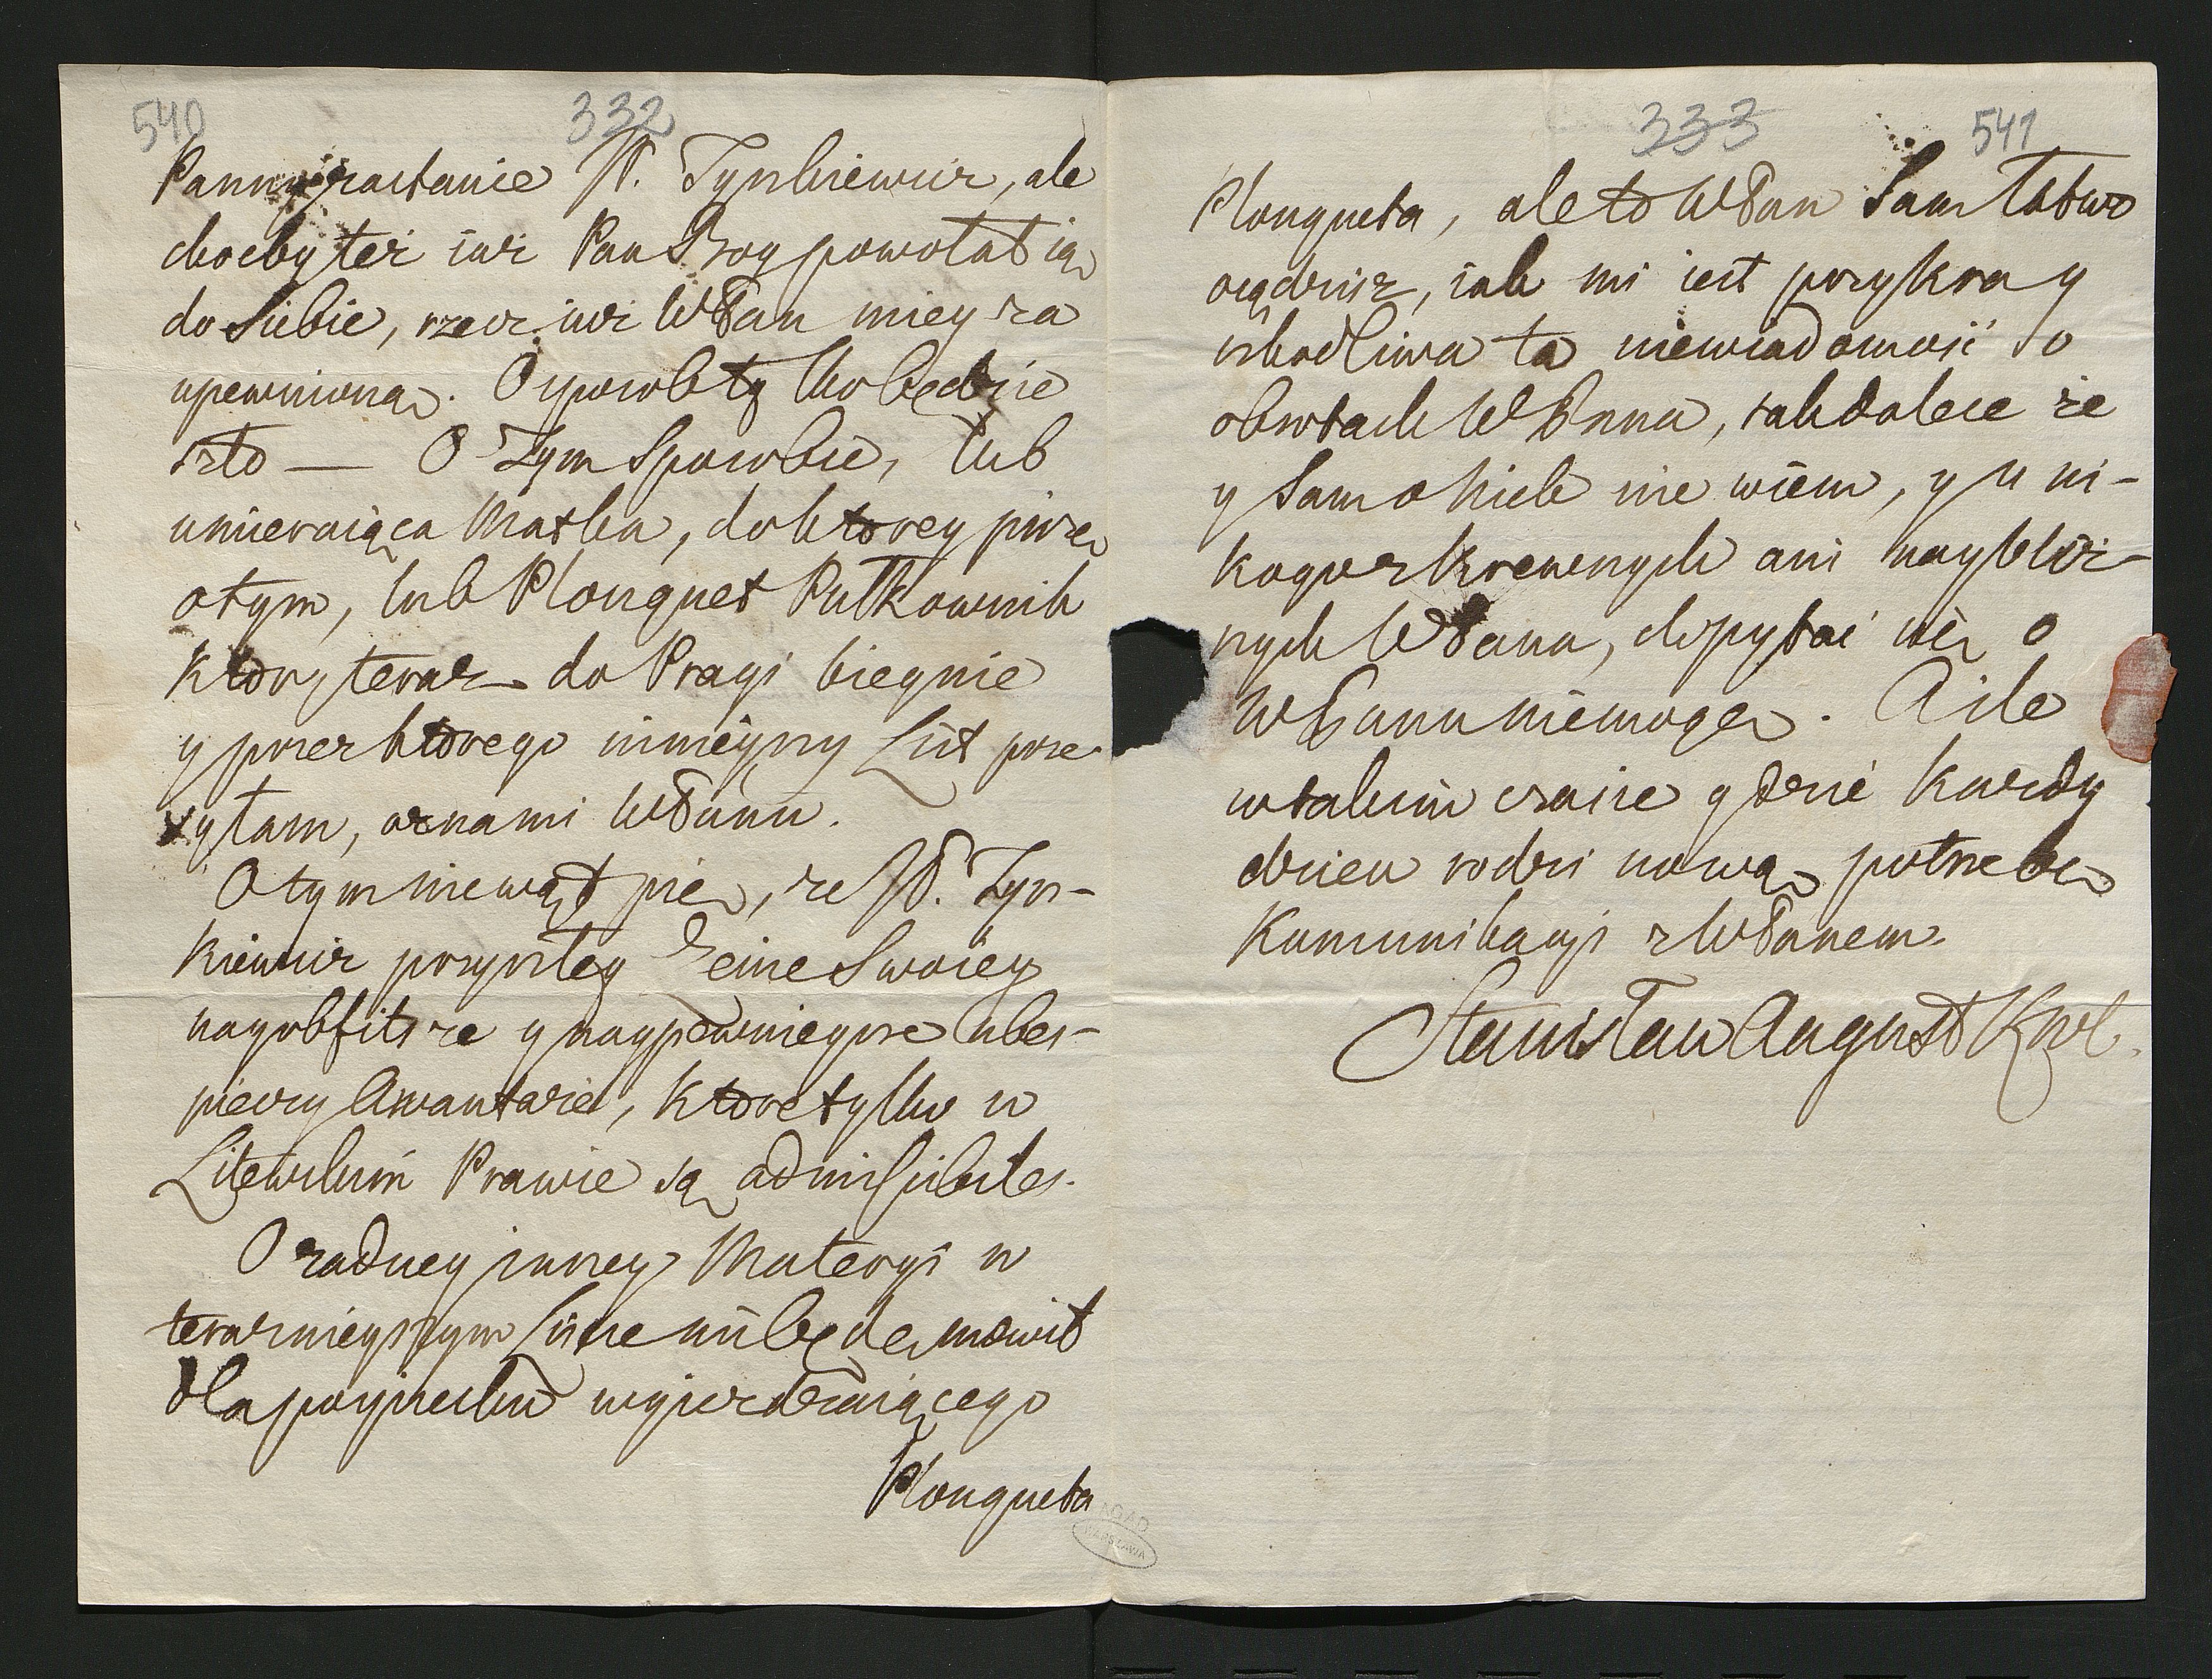 540
332
Panny zastanie JP. Tyszkiewicz, ale
choćby też iuż Pan Bog powołał ią
do Siebie, rzecz iuż WPan miey za
upewnioną. O sposob ty kto będzie
szło — O Tym Sposobie, lub
umieraiąca Matka, do ktorey piszę
o tym, lub Plonquet Pułkownik
Ktory teraz do Pragi biegnie
y przez ktorego ninieyszy List prze
syłam, oznaymi WPanu.
O tym niewątpię, że JP. Tysz-
kiewicz przyszłey Żenie Swoiey
nayobfitsze y naypewnieysze ubes-
pieczy Awantaże, ktore tylko w
Litewskim Prawie są admissibiles.
O żadney inney Materyi w
teraznieyszym Liście nie będę mowił
dla pospiechu wyieżdżaiącego
Plonqueta
333
541
Plonqueta, ale to WPan Sam łatwo
osądzisz, iak mi iest przykra y
szkodliwa ta niewiadomość o
obrotach WPana, tak dalece że
y Sam o nich nie wiem, y u ni-
kogo z Krewnych ani nayblisz-
nych WPana, dopytać się o
WPanu niemogę. A ile
w takim czasie gdzie każdy
dzien rodzi nową potrzebę
Kommunikacyi z WPanem.
Stanisław August Krol.
AGAD
WARSZAWA